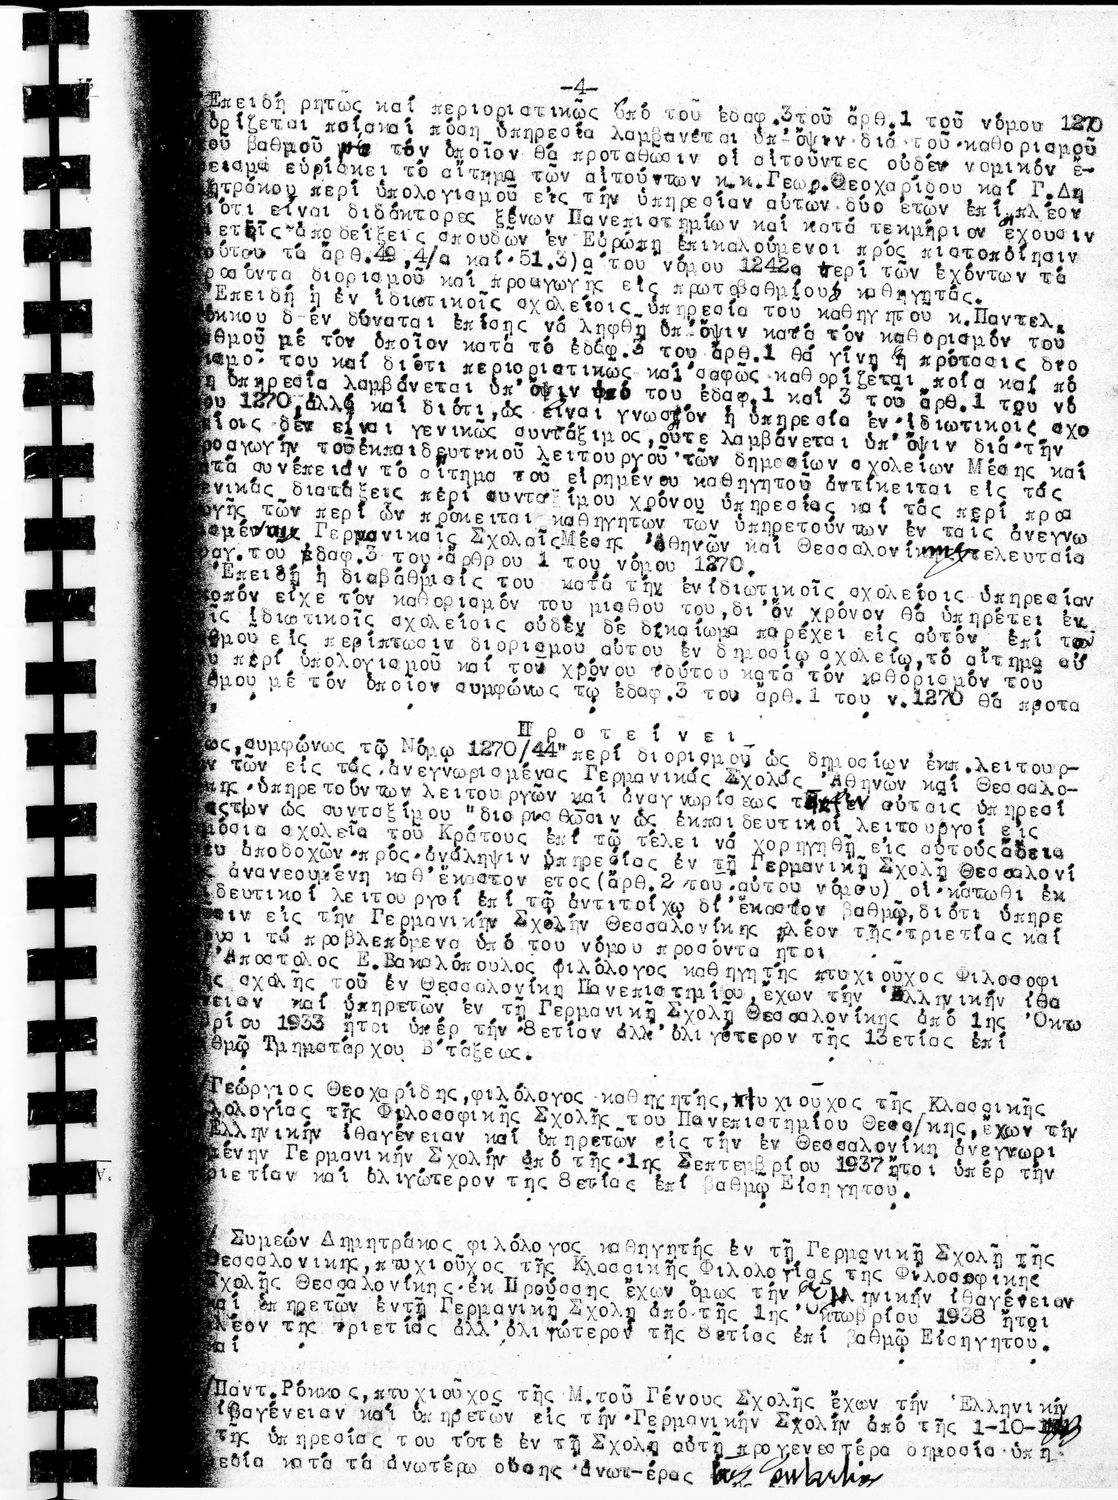 -4-
Ἐπειδή ρητῶς καί περιοριστικῶς ὑπό τοῦ ἐδαφ.3τοῦ ἄρθ.1 τοῦ νόμου 1270
ὁρίζεται ποίακαί πόση ὑπηρεσία λαμβάνεται ὑπ'ὄψιν διά τοῦ καθορισμοῦ
οῦ βαθμοῦ τόν ὁποῖον θά προταθῶσιν οἱ αἰτοῦντες οὐδέν νομικόν ἔ-
εισμα εὑρίσκει τό αἴτημα τῶν αἰτούντων κ.κ.Γεωρ.Θεοχαρίδου καί Γ.Δη
ητράκου περί ὑπολογισμοῦ εἰς τήν ὑπηρεσίαν αὐτῶν δύο ἐτῶν ἐπί πλέον
ιότι εἶναι διδάκτορες ξένων Πανεπιστημίων καί κατά τεκμήριον ἔχουσιν
ετεῖς ἀποδείξεις σπουδῶν ἐν Εὐρώπῃ ἐπικαλούμενοι πρός πιστοποίησιν
ούτου τά ἄρθ.49,4/α καί 51.3)α του νόμου 1242α περί τῶν ἐχόντων τά
ροσόντα διορισμοῦ καί προαγωγῆς εἰς πρωτοβαθμίους καθηγητάς.
Ἐπειδή ἡ ἐν ἰδιωτικοῖς σχολείοις ὑπηρεσία του καθηγητου κ.Παντελ.
όκκου δ-έν δύναται ἐπίσης νά ληφθῇ ὑπ'ὄψιν κατά τόν καθορισμόν του
αθμοῦ μέ τόν ὁποῖον κατά τό ἐδάφ.3 του ἄρθ.1 θά γίνῃ ἡ πρότασις διο
ισμοῦ του καί διότι περιοριστικως καί σαφῶς καθορίζεται ποία καί πό
η ὑπηρεσία λαμβάνεται ὑπ'ὄψιν ὑπό του ἐδαφ.1 καί 3 του ἄρθ.1 του νό
ου 1270,ἀλλά καί διότι,ὡς εἶναι γνωστόν ἡ ὑπηρεσία ἐν ἰδιωτικοις σχο
είοις δέν εἶναι γενικῶς συντάξιμος,οὔτε λαμβάνεται ὑπ'ὄψιν διά τήν
ροαγωγήν τοῦἐκπαιδευτικοῦ λειτουργοῦ τῶν δημοσίων σχολείων Μέσης καί
ατά συνέπειάν τό αἴτημα τοῦ εἰρημένου καθηγητοῦ ἀντίκειται εἰς τάς
ενικάς διατάξεις περί συνταξίμου χρόνου ὑπηρεσίας καί τάς περί προα
ωγῆς τῶν περί ὧν πρόκειται καθηγητων τῶν ὑπηρετούντων ἐν ταῖς ἀνεγνω
ισμέναις Γερμανικαῖς ΣχολαῖςΜέσης Ἀθηνῶν καί Θεσσαλονίκης τελευταία
αγ.του ἐδαφ.3 του ἄρθρου 1 του νόμου 1270.
Ἐπειδή ἡ διαβάθμισίς του κατά τήν ἐνἰδιωτικοῖς σχολείοις ὑπηρεσίαν
κοπόν εἶχε τόν καθορισμόν του μισθου του,δι'ὅν χρόνον θά ὑπηρέτει ἐν
οῖς ἰδιωτικοῖς σχολείοις οὐδέν δέ δικαίωμα παρέχει εἰς αὐτόν ἐπί του
θμου εἰς περίπτωσιν διορισμου αὐτου ἐν δημοσίῳ σχολείῳ,τό αἴτημα αὐ
υ περί ὑπολογισμοῦ καί τοῦ χρόνου τούτου κατά τόν καθορισμόν τοῦ
θμου μέ τόν ὁποῖον συμφώνως τῷ ἐδαφ.3 του ἄρθ.1 του ν.1270 θά προτα
Π ρ ο τ ε ί ν ε ι
ως,συμφώνως τῷ Νόμῳ 1270/44"περί διορισμοῦ ὡς δημοσίων ἐκπ.λειτουρ-
ν τῶν εἰς τάς ἀνεγνωρισμένας Γερμανικάς Σχολάς Ἀθηνῶν καί Θεσσαλο-
κης ὑπηρετούντων λειτουργῶν καί ἀναγνωρίσεως αὐταις ὑπηρεσί
αὐτῶν ὡς συνταξίμου "διορισθῶσιν ὡς ἐκπαιδευτικοί λειτουργοί εἰς
μόσια σχολεῖα τοῦ Κράτους ἐπί τῷ τέλει νά χορηγηθῇ εἰς αὐτούςἄδεια
υ ἀποδοχῶν πρός ἀνάληψιν ὑπηρεσίας ἐν τῇ Γερμανικῇ Σχολῇ Θεσσαλονί
ς ἀνανεουμένη καθ'ἕκαστον ετος(ἄρθ.2 του αὐτου νόμου) οἱ κάτωθι ἐκ
δευτικοί λειτουργοί ἐπί τῷ ἀντιτοίχῳ δι'ἕκαστον βαθμῷ,διότι ὑπηρε
σιν εἰς τήν Γερμανικήν Σχολήν Θεσσαλονίκης πλέον τῆς τριετίας καί
υσι τά προβλεπόμενα ὑπό του νόμου προσόντα ἤτοι
Ἀπόστολος Ε.Βακαλόπουλος φιλόλογος καθηγητής πτυχιοῦχος Φιλοσοφι
ῆς σχολῆς τοῦ ἐν Θεσσαλονίκῃ Πανεπιστημίου,ἔχων τήν Ἑλληνικήν ἰθα
νειαν καί ὑπηρετῶν ἐν τῇ Γερμανικῇ Σχολῇ Θεσσαλονίκης ἀπό 1ης Ὀκτω
ρίου 1933 ἤτοι ὑπέρ τήν 8ετίαν ἀλλ'ὀλιγώτερον τῆς 13ετίας ἐπί
θμῷ Τμηματάρχου Β'τάξεως.
Γεώργιος Θεοχαρίδης,φιλόλογος καθηγητής,πτυχιοῦχος τῆς Κλασσικῆς
λολογίας τῆς Φιλοσοφικῆς Σχολῆς του Πανεπιστημίου Θεσσ/κης,ἔχων τήν
Ἑλληνικήν ἰθαγένειαν καί ὑπηρετῶν εἰς τήν ἐν Θεσσαλονίκῃ ἀνεγνωρι
μένην Γερμανικήν Σχολήν ἀπό τῆς 1ης Σεπτεμβρίου 1937 ἤτοι ὑπέρ τήν
ριετίαν καί ὀλιγώτερον της 8ετίας ἐπί βαθμῷ Εἰσηγητου.
Συμεών Δημητράκος φιλόλογος καθηγητής ἐν τῇ Γερμανικῇ Σχολῇ τῆς
Θεσσαλονικης,πτυχιοῦχος τῆς Κλασσικῆς Φιλολογίας τῆς Φιλοσοφικης
Σχολῆς Θεσσαλονίκης ἐκ Προύσσης ἔχων ὅμως τήν Ἑλληνικήν ἰθαγένειαν
καί ὑπηρετῶν ἐντῇ Γερμανικῇ Σχολῃ ἀπό τῆς 1ης Ὀκτωβρίου 1938 ἤτοι
λέον τῆς τριετίας ἀλλ'ὀλιγώτερον τῆς 8ετίας ἐπί βαθμῷ Εἰσηγητοῦ.
καί
Παντ.Ρόκκος,πτυχιοῦχος τῆς Μ.τοῦ Γένους Σχολῆς ἔχων τήν Ἑλληνικήν
ἰθαγένειαν καί ὑπηρετῶν εἰς τήν Γερμανικήν Σχολήν ἀπό τῆς 1-10-
τῆς ὑπηρεσίας του τότε ἐν τῇ Σχολῇ αὐτῇ προγενεστέρα δημοσία ὑπη
εσία κατά τά ἀνωτέρω οὔσης ἀνωτ-έρας